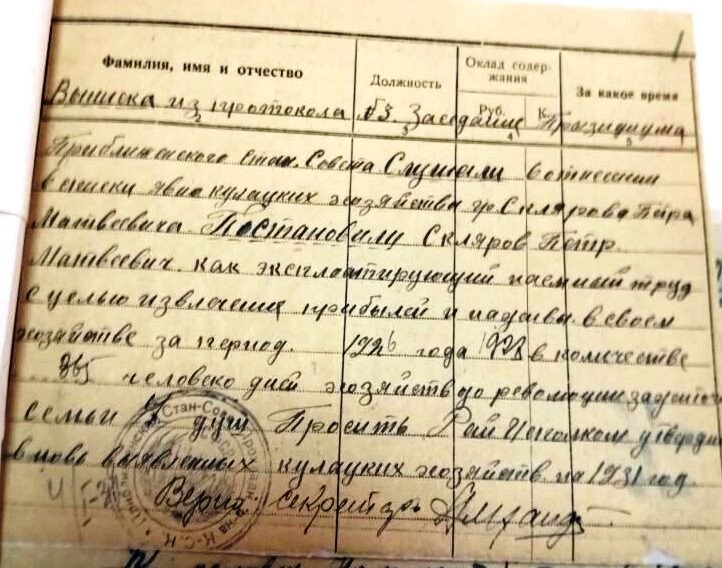 1
Фамилия, имя и отчество
Должность
Оклад содержания
За какое время
Руб.
К.
2 3 4 5
Выписка из протокола №3. Заседание Президиума
Приближенского стан. Совета Слушали о отнесении
в списки явно кулацких хозяйства гр. Склярова Петра
Матвеевича Постановили Скляров Петр.
Матвеевич. как эксплоатирующий наемный труд
с целью извлечения прибылей и наживы. в своем
хозяйстве за период. 1926 года 1928 в количестве
365 человеко дней хозяйств до революции зажиточн
семьи 7 душ Просить Рай Исполком утверди
вновь выявленных кулацких хозяйств на 1931 год.
Верно: Секретарь
Стан-Сов
р-на С.-К.К.